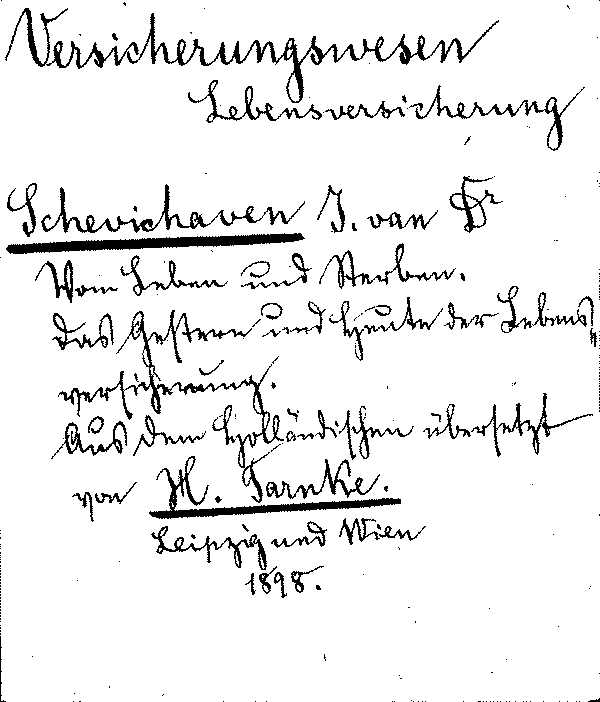 Versicherungswesen
Lebensversicherung
Schevichaven J. van Dr
Vom Leben und Sterben.
Das Gestern und Heute der Lebens-
versicherung.
Aus dem Holländischen übersetzt
von H. Tarnke.
Leipzig und Wien
1898.